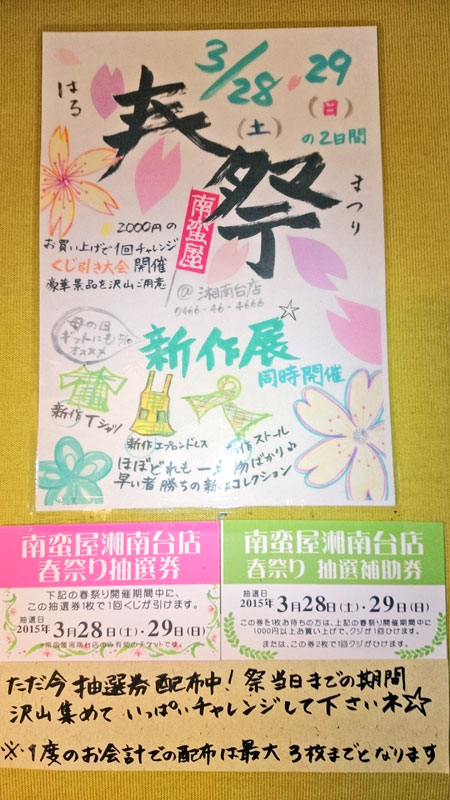 3/28・29
(土)(日)
の2日間
春祭
はる
まつり
南蛮屋
@湘南台店
0466-46-4666
2000円の
お買い上げで1回チャレンジ
くじ引き大会 開催
豪華景品を沢山ご用意
母の日
ギフトにも
オススメ
新作展☆
同時開催
新作Tシャツ
新作エプロンドレス
新作ストール
ほぼどれも一点物ばかり♪
早い者勝ちの新作コレクション
南蛮屋湘南台店
春祭り抽選券
下記の春祭り開催期間中に、
この抽選券1枚で1回くじが引けます。
抽選日
2015年3月28日(土)・29日(日)
※南蛮屋湘南台店のみ有効のチケットです。
南蛮屋湘南台店
春祭り 抽選補助券
抽選日
2015年3月28日(土)・29日(日)
この券を1枚お持ちの方は、上記の春祭り開催期間中に
1000円以上お買い上げで、クジが1回ひけます。
または、この券2枚で1回クジがひけます。
ただ今 抽選券 配布中! 祭当日までの期間
沢山集めて いっぱいチャレンジして下さいネ☆☆
※1度のお会計での配布は最大3枚までとなります